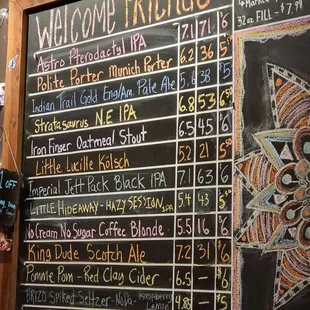 Welcome FRIENDS
4 Market
32oz FILL - $7.99
Astro Pterodactyl IPA 7.1 71 $6
Polite Porter Munich Porter 6.2 36 $5
Indian Trail Gold Eng/Am. Pale Ale 5.6 38 $5
Stratasaurus N.E IPA 6.8 53 $6.50
Iron Finger Oatmeal Stout 6.5 45 $6
Little Lucille Kölsch 5.2 21 $5
Imperial Jett Pack Black IPA 7.1 63 $6
LITTLE HIDEAWAY - HAZY SESSION IPA 5.4 43 $5
No Cream No Sugar Coffee Blonde 5.5 16 $6
King Dude Scotch Ale 7.2 31 $6
Pomme Pom - Red Clay Cider 6.5 — $6
BRIZO Spiked Seltzer - NoDa - Raspberry Lemon 4.85 — $5
OFF